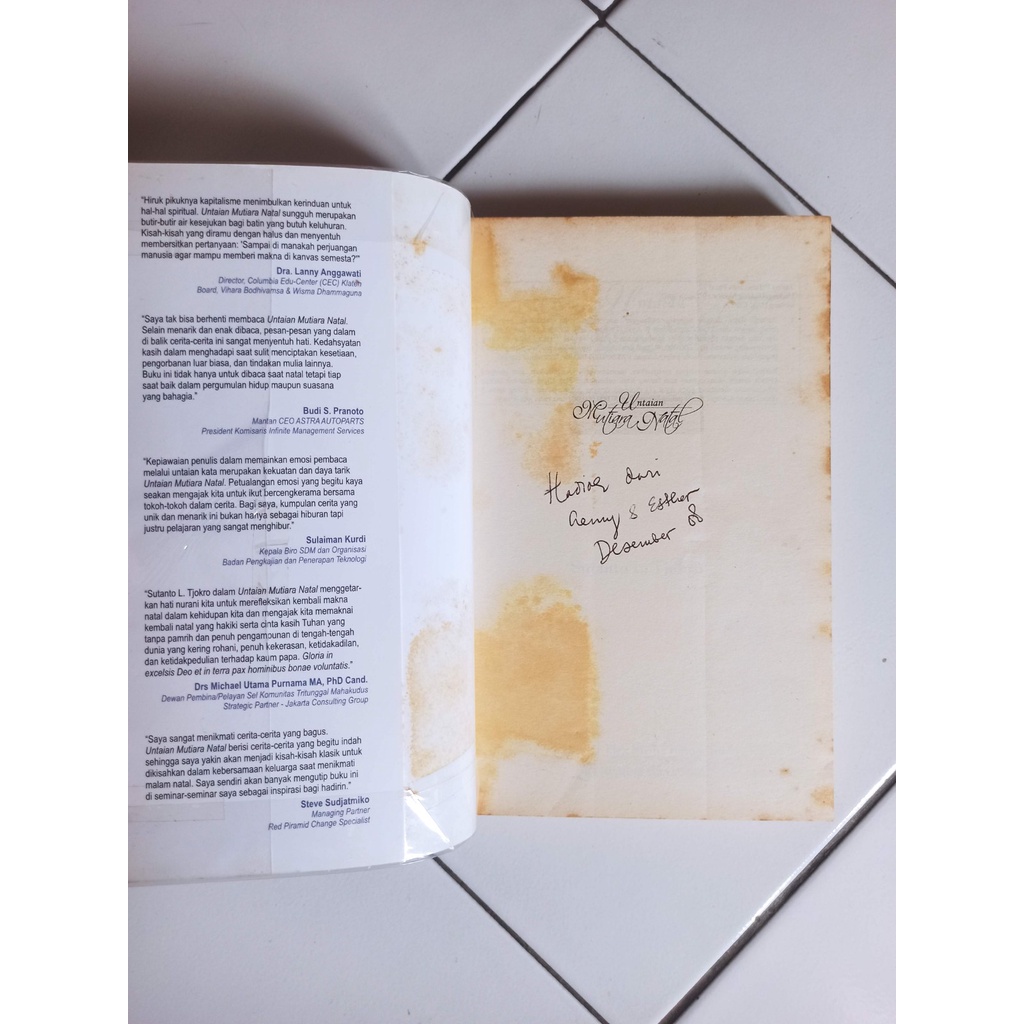 "Hiruk pikuknya kapitalisme menimbulkan kerinduan untuk
hal-hal spiritual. Untaian Mutiara Natal sungguh merupakan
butir-butir air kesejukan bagi batin yang butuh keluhuran.
Kisah-kisah yang diramu dengan halus dan menyentuh
membersitkan pertanyaan: 'Sampai di manakah perjuangan
manusia agar mampu memberi makna di kanvas semesta?'"
Dra. Lanny Anggawati
Director, Columbia Edu-Center (CEC) Klaten
Board, Vihara Bodhivamsa & Wisma Dhammaguna
"Saya tak bisa berhenti membaca Untaian Mutiara Natal.
Selain menarik dan enak dibaca, pesan-pesan yang dalam
di balik cerita-cerita ini sangat menyentuh hati. Kedahsyatan
kasih dalam menghadapi saat sulit menciptakan kesetiaan,
pengorbanan luar biasa, dan tindakan mulia lainnya.
Buku ini tidak hanya untuk dibaca saat natal tetapi tiap
saat baik dalam pergumulan hidup maupun suasana
yang bahagia."
Budi S. Pranoto
Mantan CEO ASTRA AUTOPARTS
President Komisaris Infinite Management Services
"Kepiawaian penulis dalam memainkan emosi pembaca
melalui untaian kata merupakan kekuatan dan daya tarik
Untaian Mutiara Natal. Petualangan emosi yang begitu kaya
seakan mengajak kita untuk ikut bercengkerama bersama
tokoh-tokoh dalam cerita. Bagi saya, kumpulan cerita yang
unik dan menarik ini bukan hanya sebagai hiburan tapi
justru pelajaran yang sangat menghibur."
Sulaiman Kurdi
Kepala Biro SDM dan Organisasi
Badan Pengkajian dan Penerapan Teknologi
"Sutanto L. Tjokro dalam Untaian Mutiara Natal menggetar-
kan hati nurani kita untuk merefleksikan kembali makna
natal dalam kehidupan kita dan mengajak kita memaknai
kembali natal yang hakiki serta cinta kasih Tuhan yang
tanpa pamrih dan penuh pengampunan di tengah-tengah
dunia yang kering rohani, penuh kekerasan, ketidakadilan,
dan ketidakpedulian terhadap kaum papa. Gloria in
excelsis Deo et in terra pax hominibus bonae voluntatis."
Drs Michael Utama Purnama MA, PhD Cand.
Dewan Pembina/Pelayan Sel Komunitas Tritunggal Mahakudus
Strategic Partner - Jakarta Consulting Group
"Saya sangat menikmati cerita-cerita yang bagus.
Untaian Mutiara Natal berisi cerita-cerita yang begitu indah
sehingga saya yakin akan menjadi kisah-kisah klasik untuk
dikisahkan dalam kebersamaan keluarga saat menikmati
malam natal. Saya sendiri akan banyak mengutip buku ini
di seminar-seminar saya sebagai inspirasi bagi hadirin."
Steve Sudjatmiko
Managing Partner
Red Piramid Change Specialist
Untaian
Mutiara Natal
Hadiah dari
& Esther
Desember